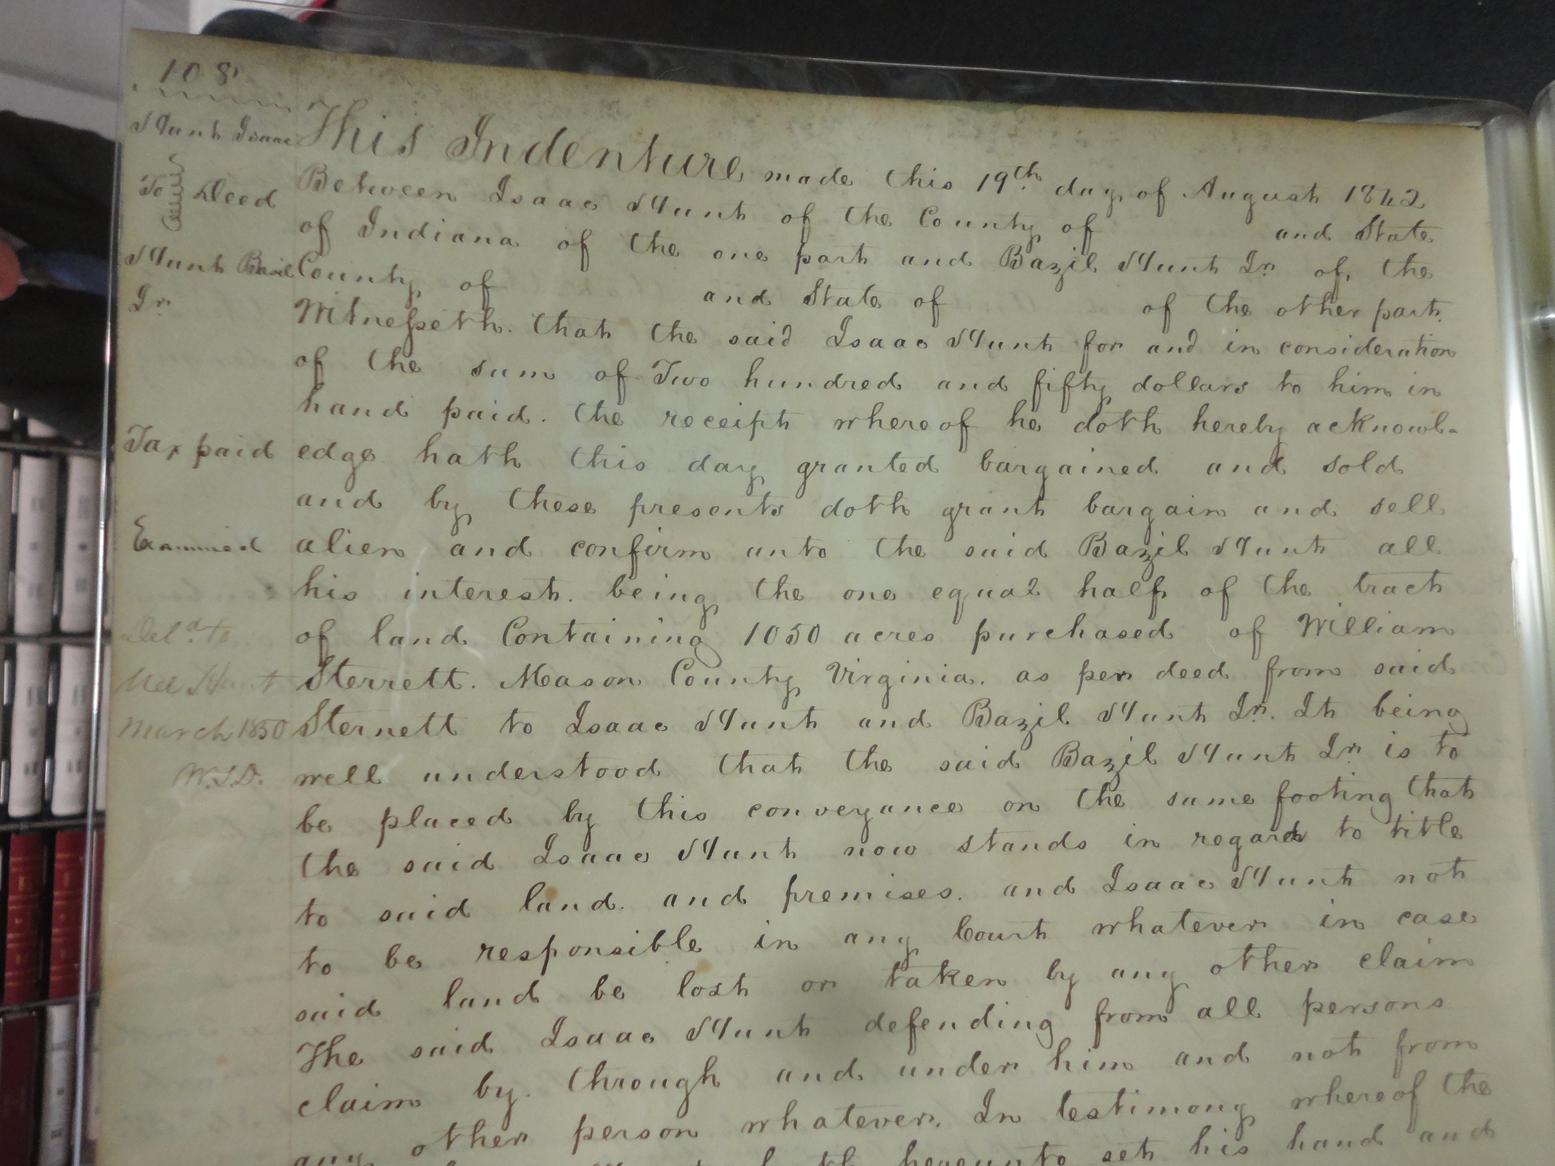 108
Hunt Isaac
To Deed
Hunt Bazil
Jr
Tax paid
Examined
Deld to
March 1850
W.S.D.
This Indenture, made this 19th day of August 1842
Between Isaac Hunt of the County of and State
of Indiana of the one part and Bazil Hunt Jr of, the
County of and State of of the other part.
Witnesseth. that the said Isaac Hunt for and in consideration
of the sum of Two hundred and fifty dollars to him in
hand paid. the receipt whereof he doth hereby acknowl-
edge hath this day granted bargained and sold
and by these presents doth grant bargain and sell
alien and confirm unto the said Bazil Hunt all
his interest. being the one equal half of the tract
of land Containing 1050 acres purchased of William
Sterrett. Meason County Virginia. as per deed from said
Sternett to Isaac Hunt and Bazil Hunt Jr. It being
well understood that the said Bazil Hunt Jr is to
be placed by this conveyance on the same footing that
the said Isaac Hunt now stands in regard to title
to said land. and premises. and Isaac Hunt not
to be responsible in any Court whatever in case
said land be lost or taken by any other claim
The said Isaac Hunt defending from all persons
claim by. through and under him and not from
any other person whatever. In testimony whereof the
hereunto set his hand and